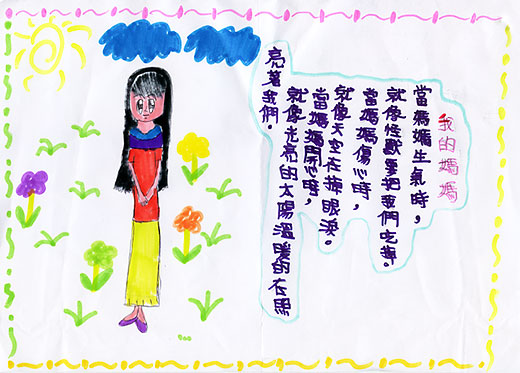 我的媽媽
當媽媽生氣時，
就像怪獸要把我們吃掉。
當媽媽傷心時，
就像天空在掉眼淚。
當媽媽開心時，
就像光亮的太陽溫暖的在照
亮著我們．